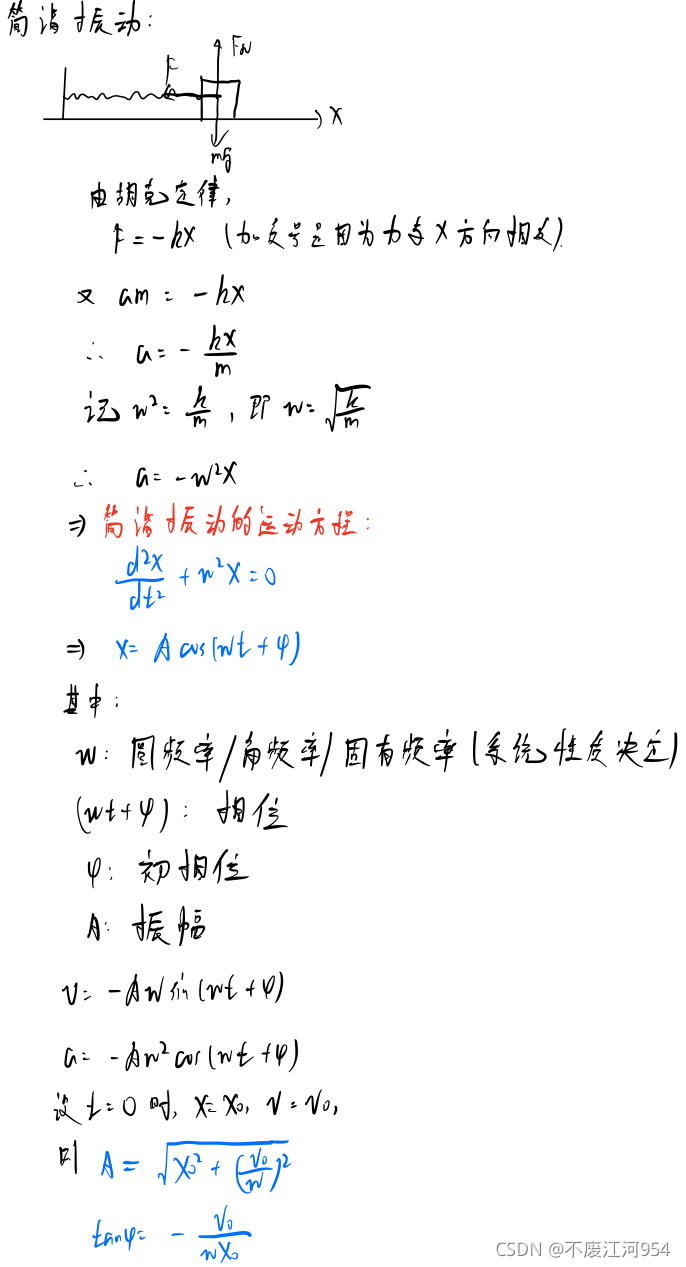 简谐振动:
F FN
x
mg
由胡克定律,
F = -kx (加负号是因为力与x方向相反)
又 am = -kx
∴ a = - kx/m
记 w² = k/m , 即 w = √(k/m)
∴ a = -w²x
⇒ 简谐振动的运动方程:
d²x/dt² + w²x = 0
⇒ x = A cos(wt + φ)
其中:
w: 圆频率/角频率/固有频率(系统性质决定)
(wt + φ): 相位
φ: 初相位
A: 振幅
v = -Aw sin(wt + φ)
a = -Aw² cos(wt + φ)
设 t = 0 时, x = x₀, v = v₀,
则 A = √(x₀² + (v₀/w)²)
tanφ = - v₀/wx₀
CSDN @不废江河954